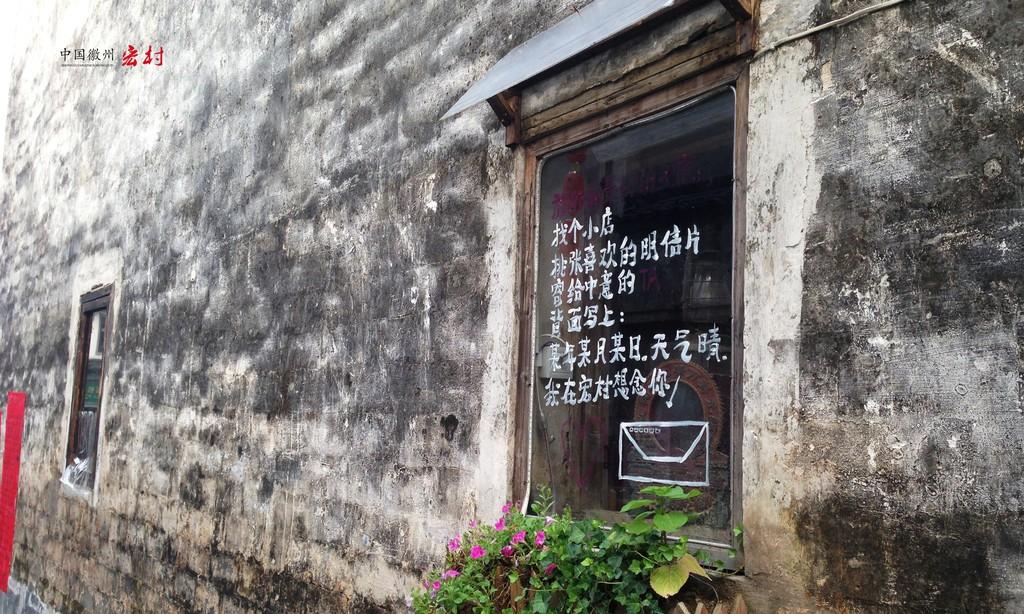 中国徽州 宏村
找个小店
挑张喜欢的明信片
寄给中意的TA
背面写上:
某年某月某日.天气晴.
我在宏村想念你!